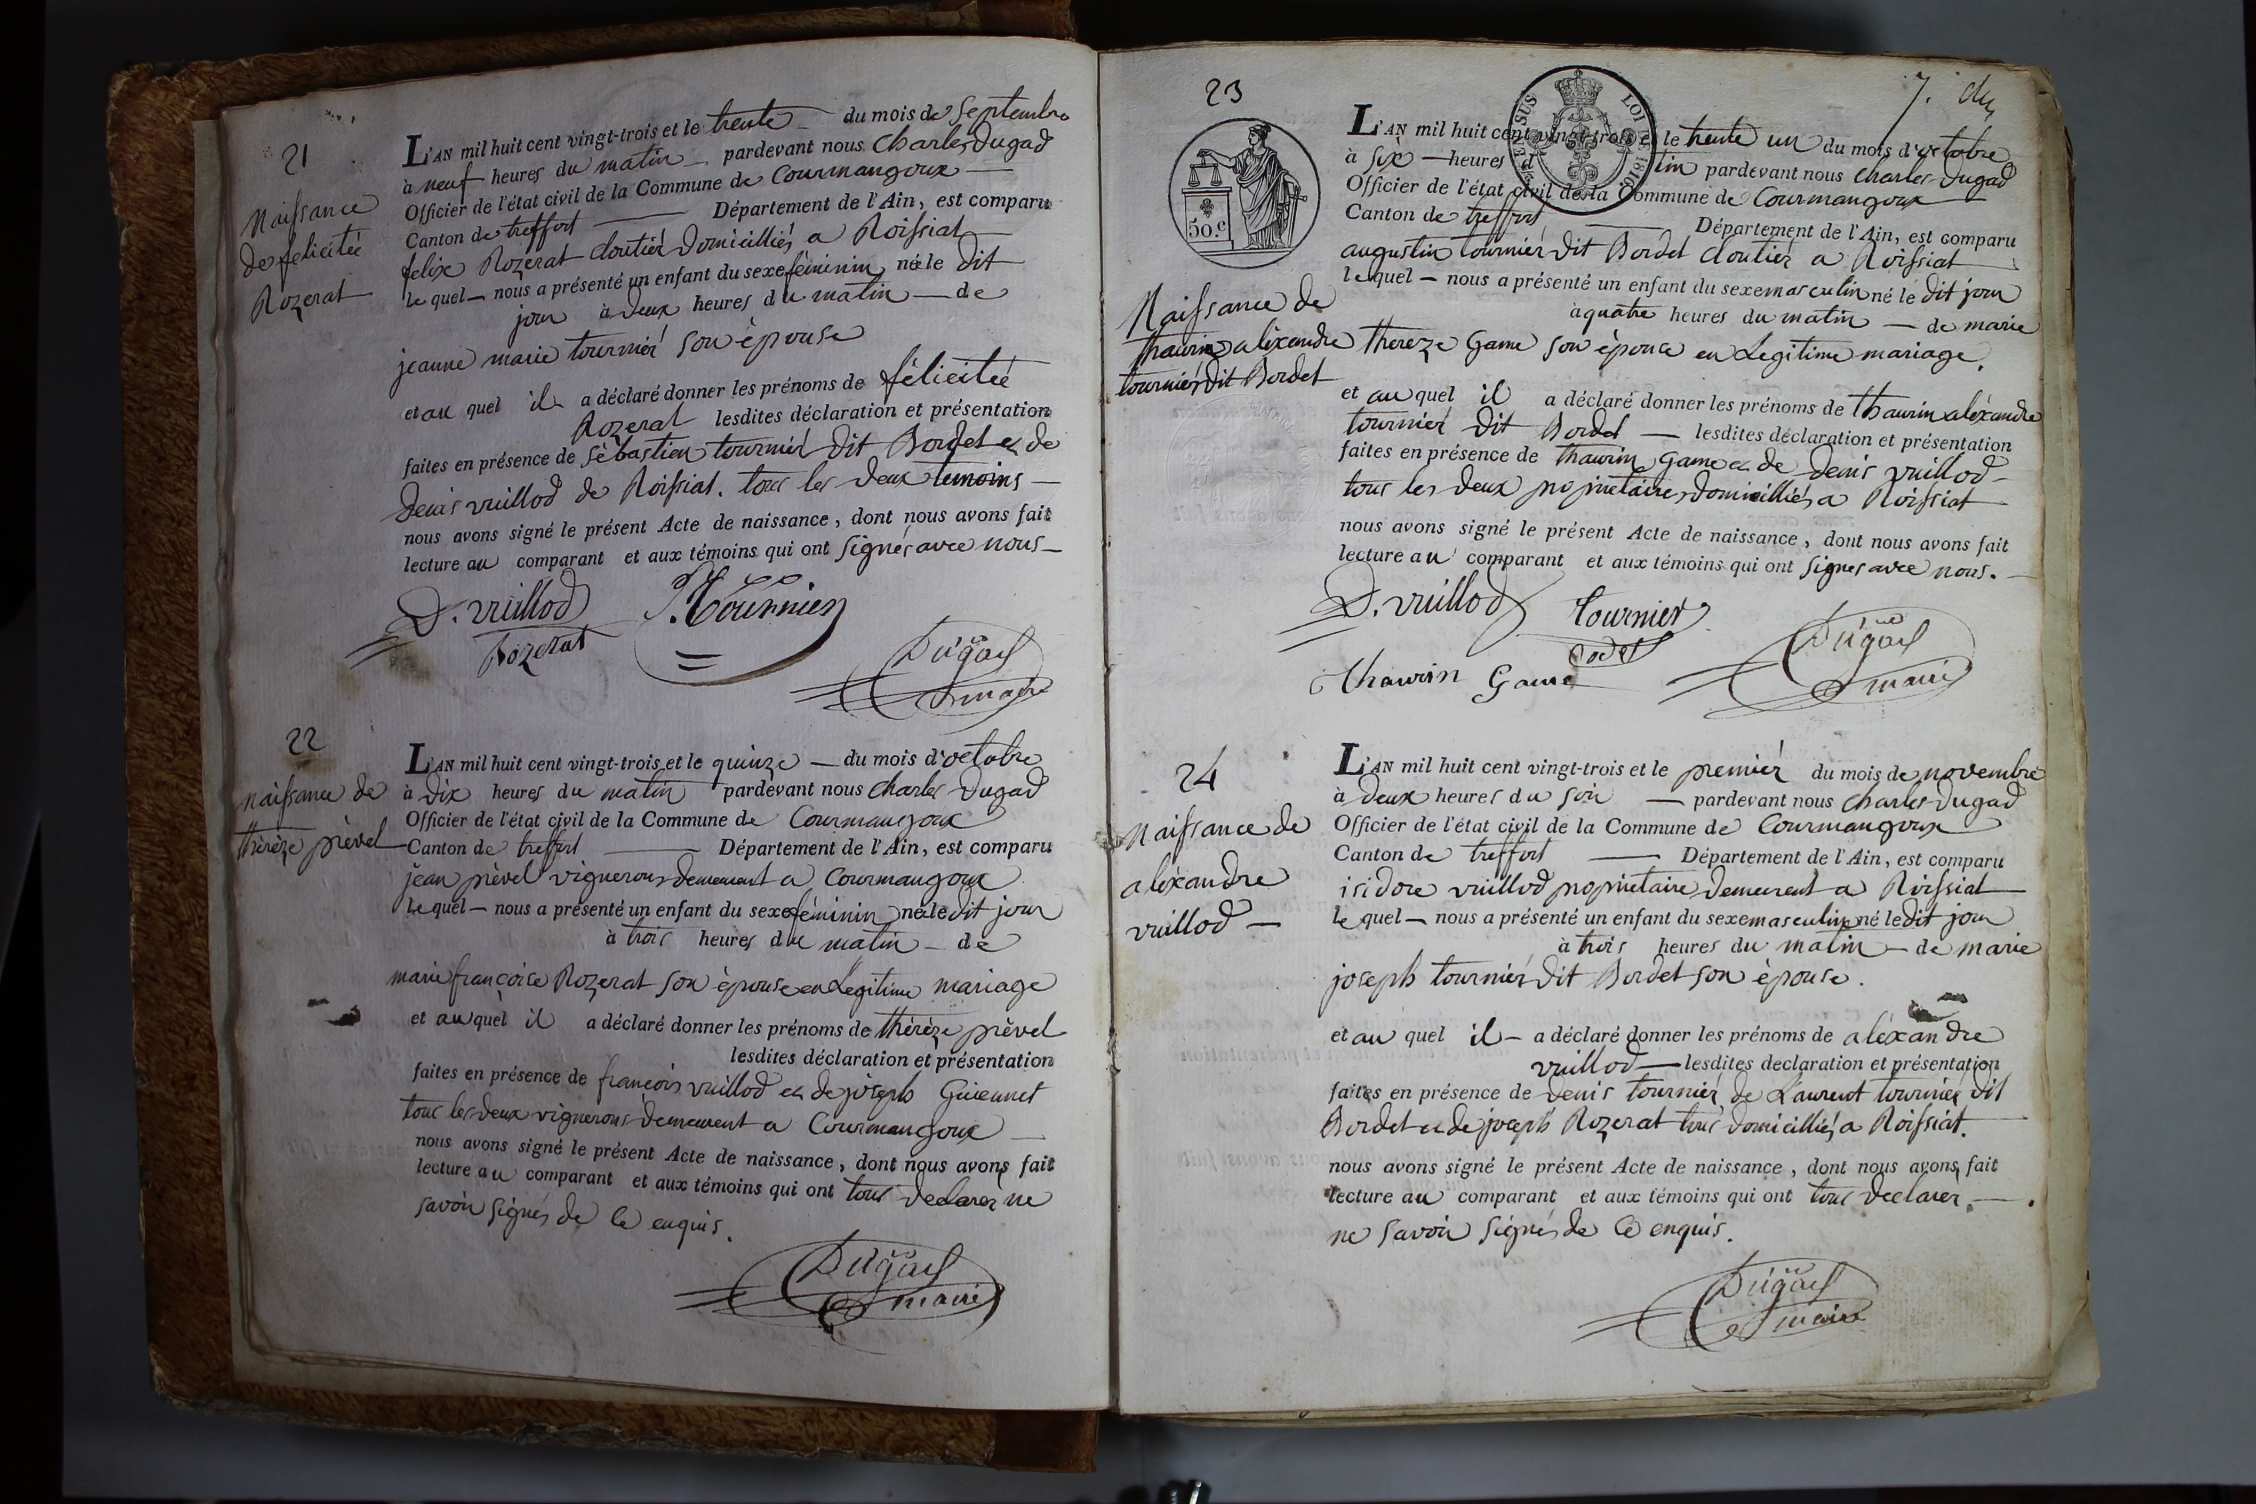 21
Naissance
de felicitée
Rozerat
L'AN mil huit cent vingt-trois et le trente du mois de Septembre
à neuf heures du matin pardevant nous Charles Dugad
Officier de l'état civil de la Commune de Courmangoux
Canton de treffort Département de l'Ain, est comparu
felix Rozerat cloutier domicilliés a Roissiat
le quel nous a présenté un enfant du sexe féminin née le dit
jour à deux heures du matin de
jeanne marie tournier son èpouse
et au quel il a déclaré donner les prénoms de félicitée
Rozerat lesdites déclaration et présentation
faites en présence de sèbastien tournier dit Bordet et de
Denis vuillod de Roissiat. tous les deux temoins
nous avons signé le présent Acte de naissance, dont nous avons fait
lecture au comparant et aux témoins qui ont signés avec nous
D. vuillod
Rozerat
Tournier
Dugad
maire
22
naissance de
thérèze prèvel
L'AN mil huit cent vingt-trois et le quinze du mois d'octobre
à dix heures du matin pardevant nous Charles Dugad
Officier de l'état civil de la Commune de Courmangoux
Canton de treffort Département de l'Ain, est comparu
jean prèvel vignerons demeurent a Courmangoux
le quel nous a présenté un enfant du sexe féminin née le dit jour
à trois heures du matin de
marie françoise Rozerat son èpouse en Legitime mariage
et au quel il a déclaré donner les prénoms de thérèze prèvel
lesdites déclaration et présentation
faites en présence de françois vuillod et de joseph
tous les deux vignerons demeurent a Courmangoux
nous avons signé le présent Acte de naissance, dont nous avons fait
lecture au comparant et aux témoins qui ont tous declarer ne
savoir signés de ce enquis.
Dugad
maire
7.
23
CENSUS
LOI DE 1816
50.c
Naissance de
thaurin alèxandre
tournier dit Bordet
L'AN mil huit cent vingt-trois le trente un du mois d'octobre
à six heures d tin pardevant nous Charles Dugad
Officier de l'état civil de la Commune de Courmangoux
Canton de treffort Département de l'Ain, est comparu
augustin tournier dit Bordet cloutier a Roissiat
le quel nous a présenté un enfant du sexe masculin né le dit jour
à quatre heures du matin de marie
thereze Game son èpouce en Legitime mariage.
et au quel il a déclaré donner les prénoms de thaurin alèxandre
tournier dit Bordet lesdites déclaration et présentation
faites en présence de thaurin Game et de Denis vuillod
tous les deux propriètaires domicilliés a Roissiat
nous avons signé le présent Acte de naissance, dont nous avons fait
lecture au comparant et aux témoins qui ont signés avec nous.
D. vuillod
Tournier
Thaurin Game
Dugad
maire
24
Naissance de
alèxandre
vuillod
L'AN mil huit cent vingt-trois et le premier du mois de novembre
à deux heures du soir pardevant nous Charles Dugad
Officier de l'état civil de la Commune de Courmangoux
Canton de treffort Département de l'Ain, est comparu
isidore vuillod propriètaire demeurent a Roissiat
le quel nous a présenté un enfant du sexe masculin né le dit jour
à trois heures du matin de marie
joseph tournier dit Bordet son èpouse.
et au quel il a déclaré donner les prénoms de alèxandre
vuillod lesdites declaration et présentation
faites en présence de Denis tournier de Laurent tournier dit
Bordet et de joseph Rozerat tous domicilliés a Roissiat.
nous avons signé le présent Acte de naissance, dont nous avons fait
lecture au comparant et aux témoins qui ont tous declarer
ne savoir signés de ce enquis.
Dugad
maire